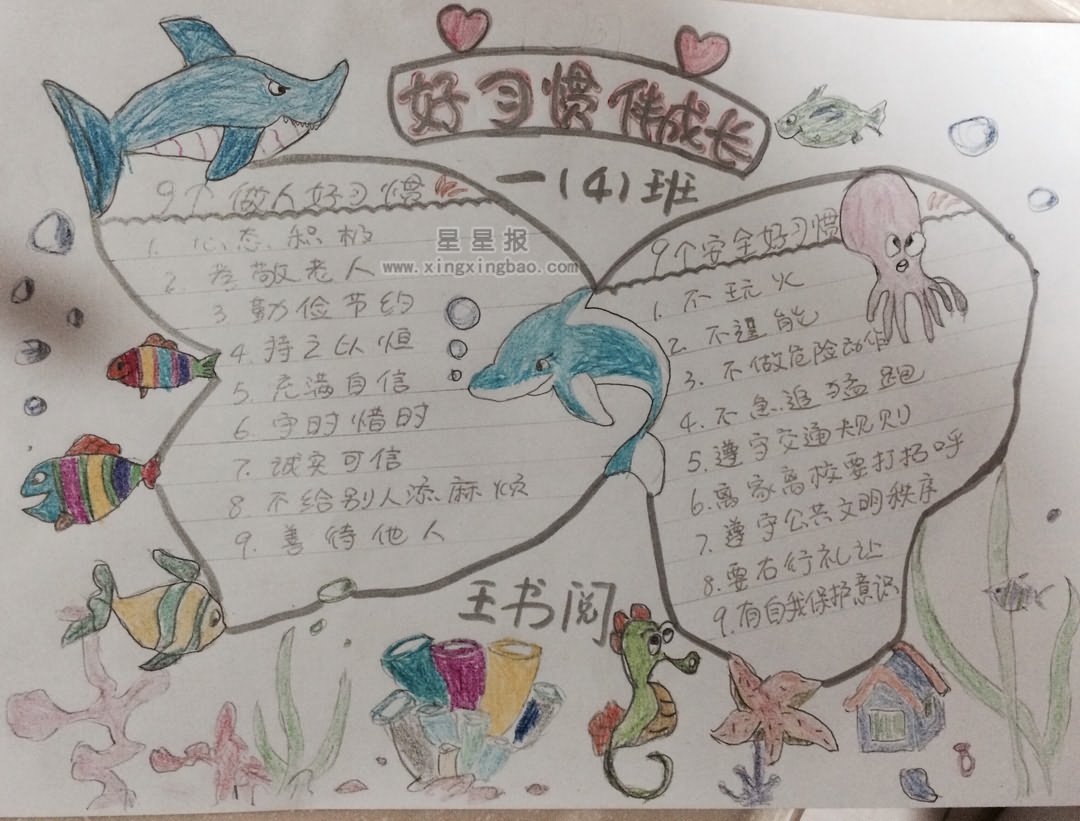 好习惯伴成长
一(4)班
9个做人好习惯
1. 心态积极
2. 孝敬老人
3 勤俭节约
4. 持之以恒
5. 充满自信
6. 守时惜时
7. 诚实可信
8 不给别人添麻烦
9. 善待他人
星星报
www.xingxingbao.com
9个安全好习惯
1. 不玩火
2. 不逞能
3. 不做危险动作
4. 不急追猛跑
5. 遵守交通规则
6. 离家离校要打招呼
7. 遵守公共文明秩序
8. 要右行礼让
9. 有自我保护意识
王书阅